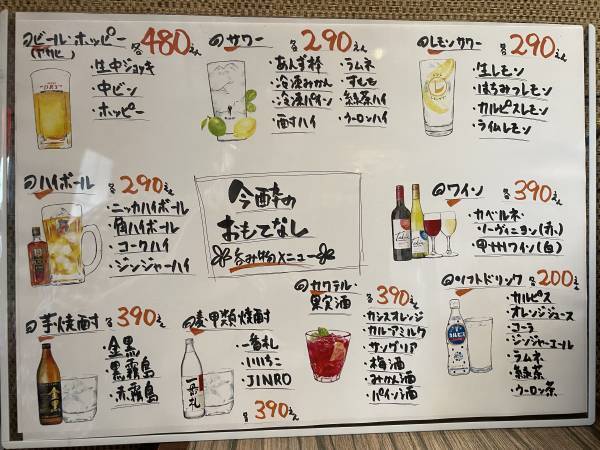 ビール・ホッピー 各480えん
(アサヒ)
・生中ジョッキ
・中ビン
・ホッピー
サワー 各290えん
・あんず棒
・冷凍みかん
・冷凍パイン
・酎ハイ
・ラムネ
・すもも
・緑茶ハイ
・ウーロンハイ
レモンサワー 各290えん
・生レモン
・はちみつレモン
・カルピスレモン
・ライムレモン
ハイボール 各290えん
・ニッカハイボール
・角ハイボール
・コークハイ
・ジンジャーハイ
今酔の
おもてなし
呑み物メニュー
ワイン 各390えん
・カベルネ・
ソーヴィニヨン(赤)
・甲州ワイン(白)
芋焼酎 各390えん
・金黒
・黒霧島
・赤霧島
麦・甲類焼酎
・一番札
・いいちこ
・JINRO
390えん
カクテル・
果実酒
各390えん
・カシスオレンジ
・カルーアミルク
・サングリア
・梅酒
・みかん酒
・パイン酒
ソフトドリンク 各200えん
・カルピス
・オレンジジュース
・コーラ
・ジンジャーエール
・ラムネ
・緑茶
・ウーロン茶